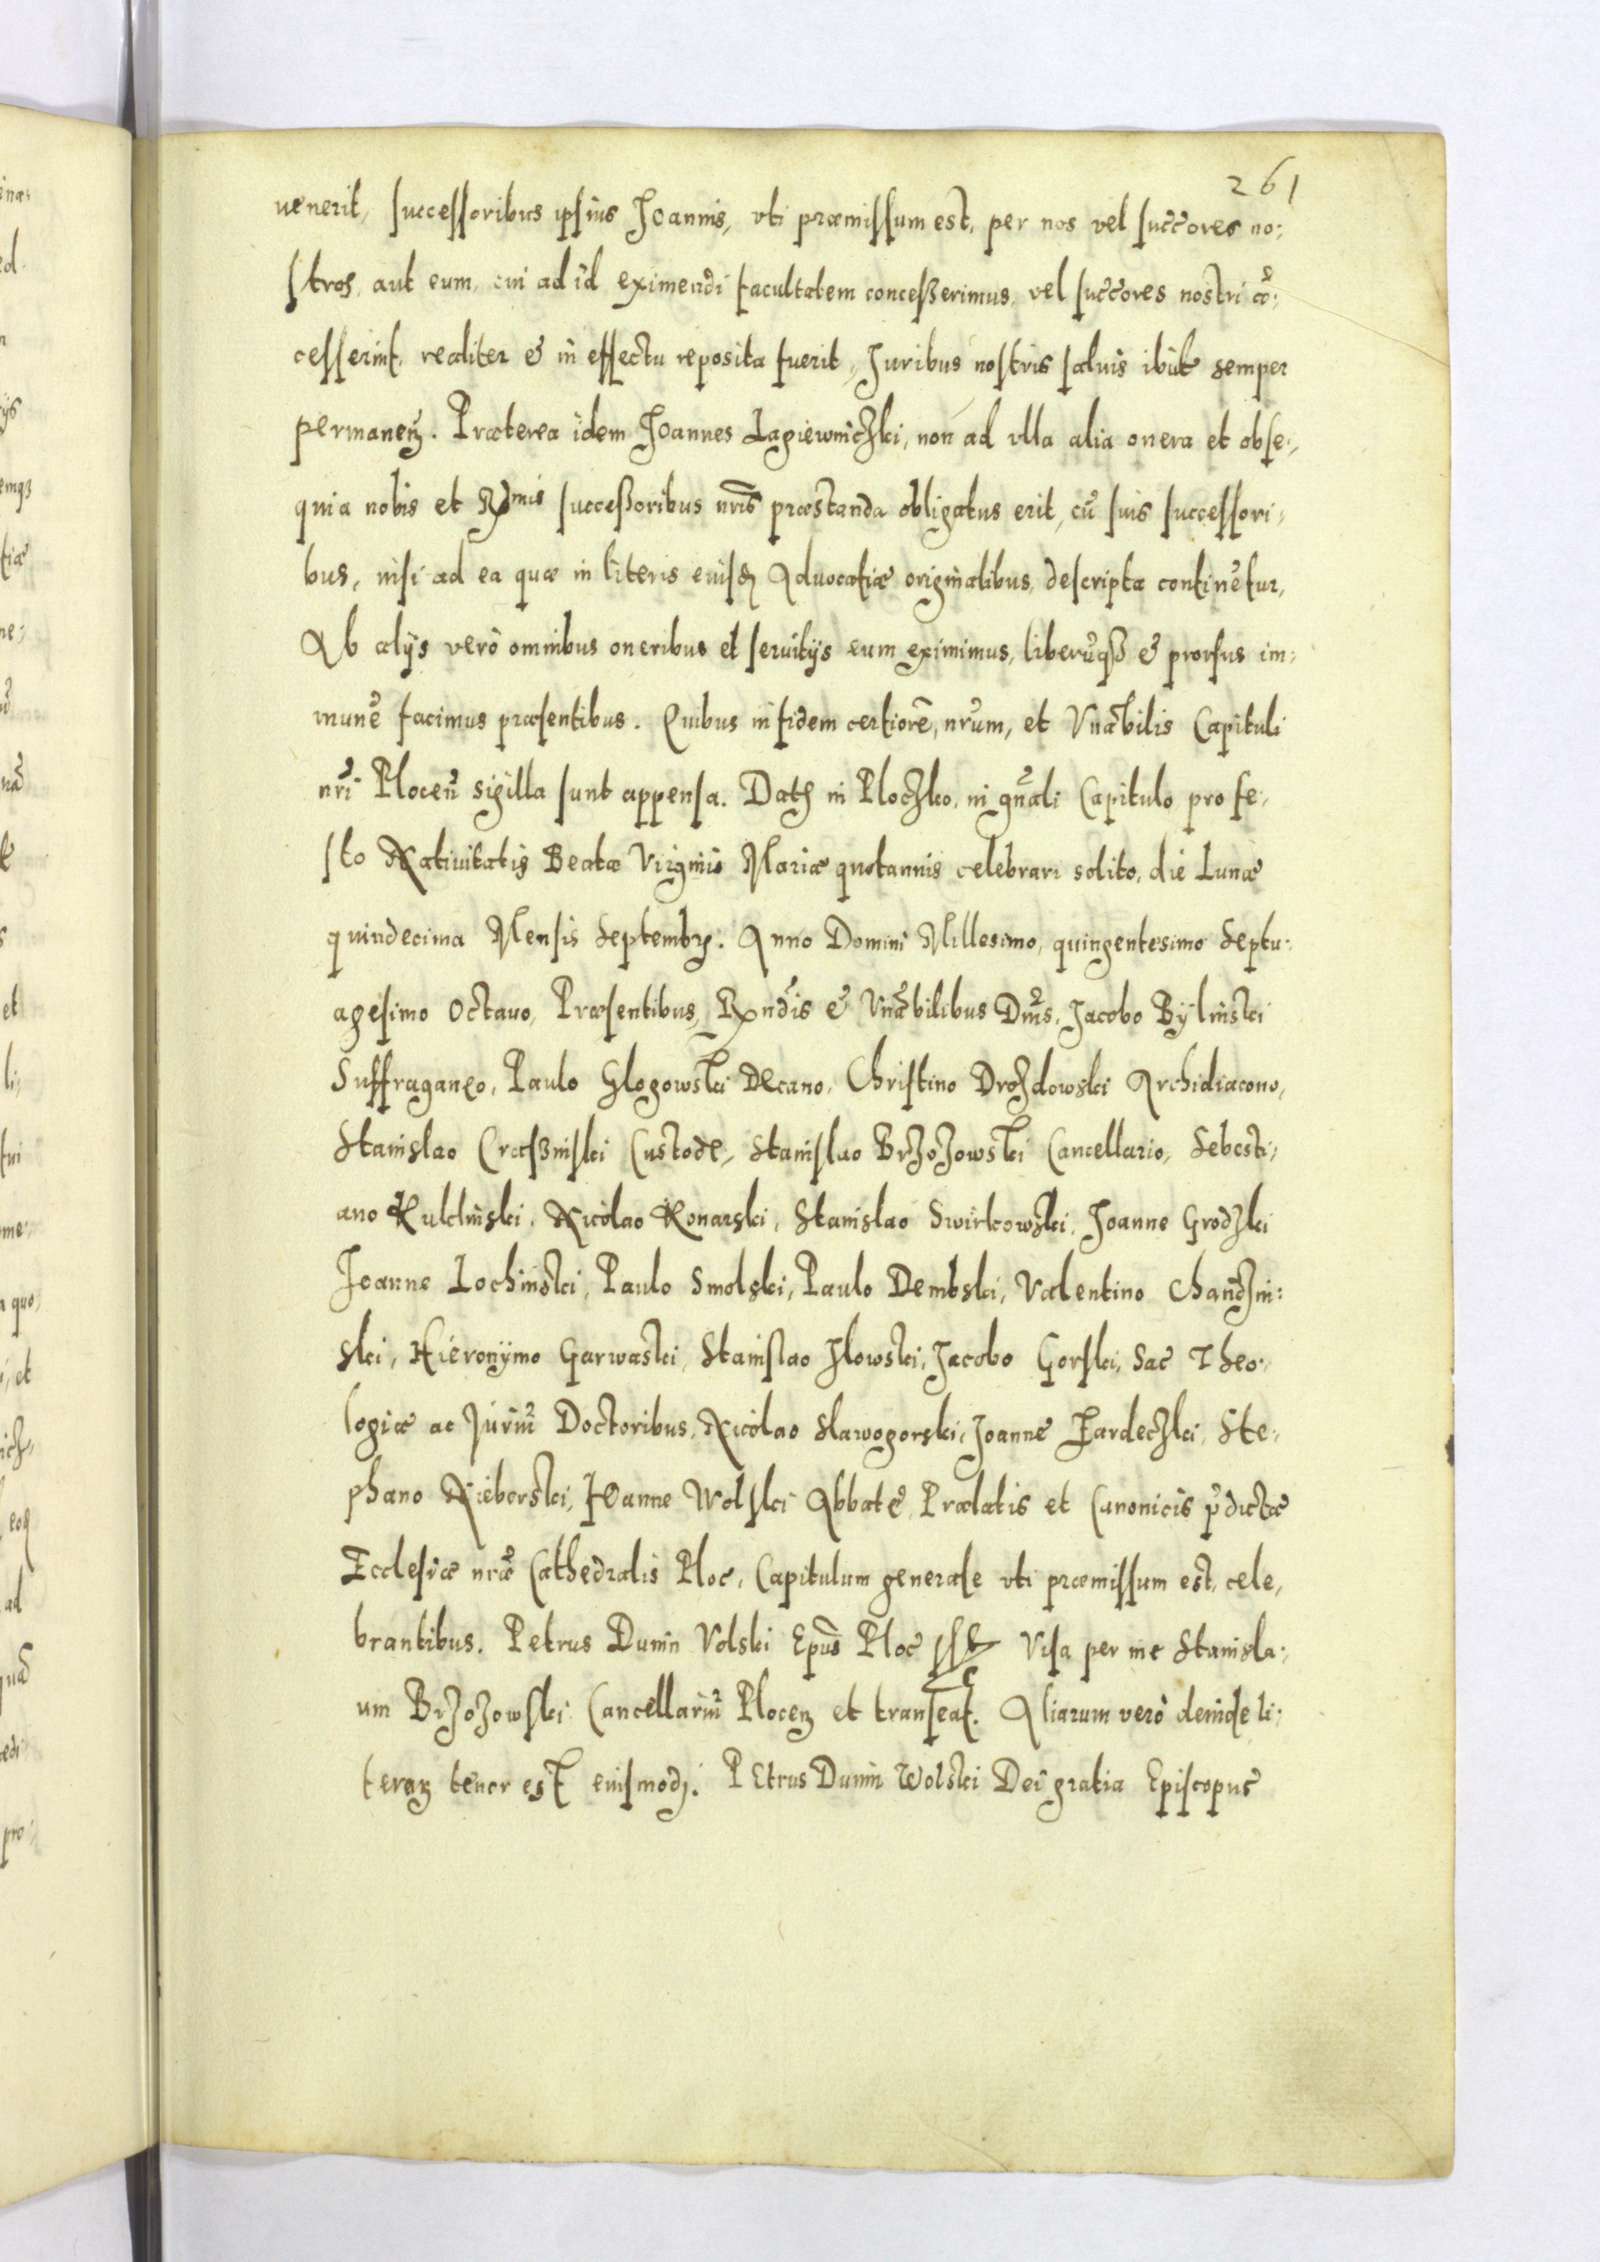 261
uenerit, successoribus ipsius Joannis, vti præmissum est, per nos vel succ̃ores no:
stros, aut eum, cui ad id eximendi facultatem concesserimus, vel succ̃ores nostri cõ:
cesserint, realiter & in effectu reposita fuerit, Juribus nostris saluis ibid̃ semper
permaneñ. Præterea idem Joannes Lagiewniczki, non ad vlla alia onera et obse,
quia nobis et Rmis successoribus nr̃is præstanda obligatus erit, cũ suis successori,
bus, nisi ad ea quæ in literis eiusdẽ Aduocatiæ originalibus, descripta continẽtur,
Ab alijs verò omnibus oneribus et seruitijs eum eximimus, liberũq3 & prorsus im:
munẽ facimus præsentibus. Quibus in fidem certiorẽ, nr̃um, et Vnãbilis Capituli
nr̃i Ploceñ sigilla sunt appensa. Datũ in Ploczko, in gñali Capitulo pro fe,
sto Natiuitatis Beatæ Virginis Mariæ quotannis celebrari solito, die Lunæ
quindecima Mensis Septembr. Anno Domini Millesimo, quingentesimo Septu:
agesimo Octauo, Præsentibus, Rñdis & Vnãbilibus Dñis, Jacobo Bÿlinski
Suffraganeo, Paulo Glogowski Decano, Christino Drozdowski Archidiacono,
Stanislao Crassinski Custode, Stanislao Brzozowski Cancellario, Sebasti,
ano Kuklinski, Nicolao Konarski, Stanislao Swirkowski, Joanne Grodzki
Joanne Lochinski, Paulo Smolski, Paulo Dembski, Valentino Chandzin:
ski, Hieronÿmo Garwaski, Stanislao Ilowski, Jacobo Gorski, Sac Theo,
logiæ ac Juriũ Doctoribus, Nicolao Slawogorski, Joanne Zardeczki, Ste,
phano Nieborski, Joanne Wolski Abbatẽ, Prælatis et Canonicis p̃dictæ
Ecclesiæ nr̃æ Cathedralis Ploc, Capitulum generale vti præmissum est, cele,
brantibus. Petrus Dunin Volski Ep̃us Ploc sst Visa per me Stanisla,
um Brzozowski Cancellariũ Plocen et transeat. Aliarum verò deinde li:
terarũ tenor est eiusmodj. PEtrus Dunin Wolski Dei gratia Episcopus